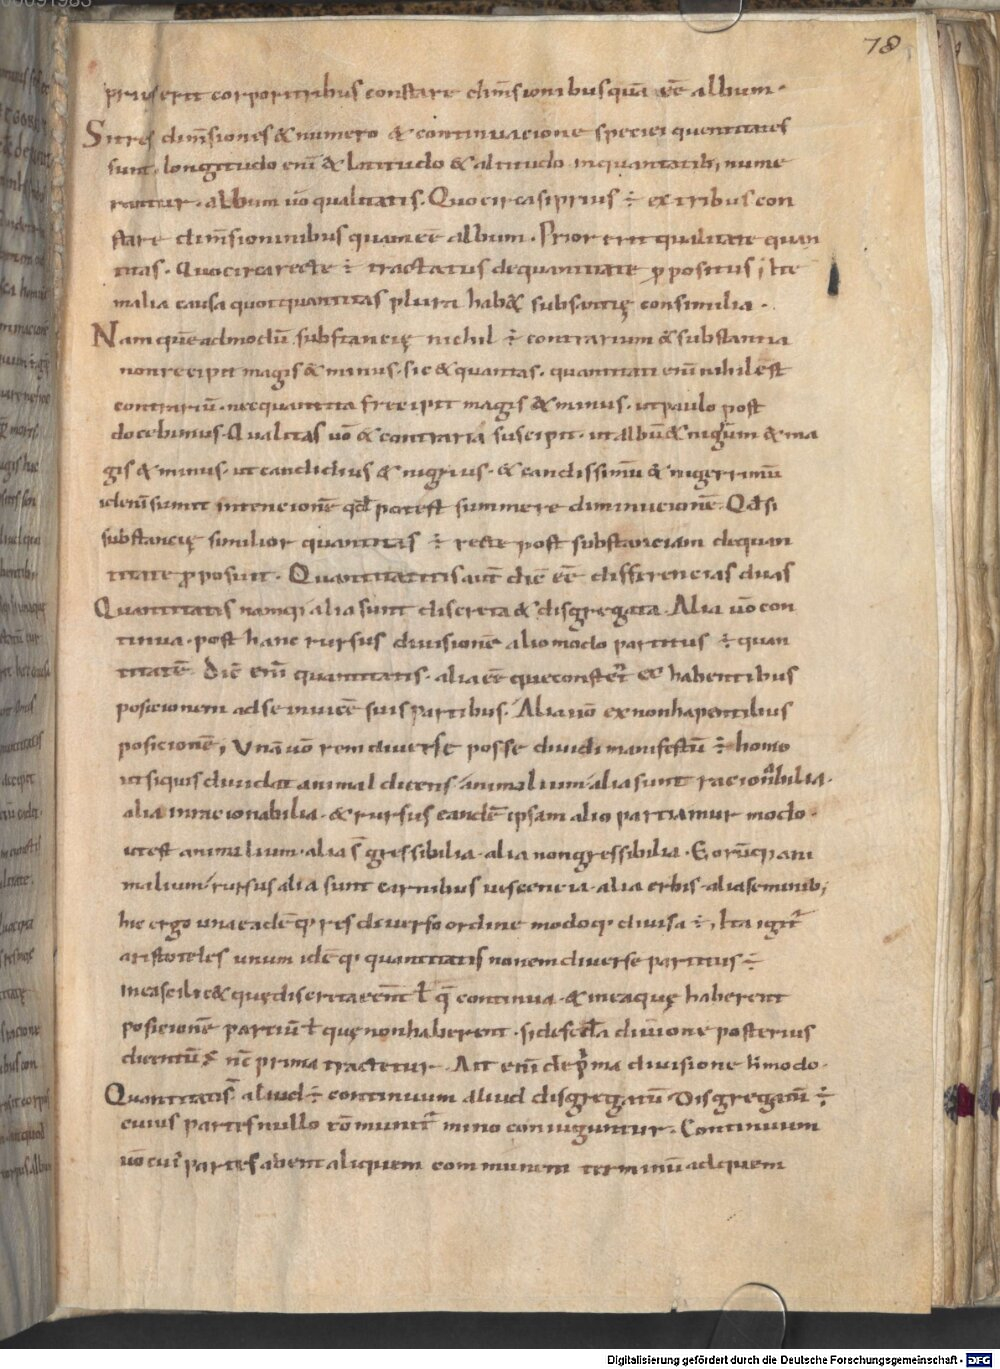 78
prius erit corporitribus constare dim̄sionibus quā eē album·
Sitres dim̄siones & numero & continuacione speciei quentitates
sunt, longitudo enī & latitudo & altitudo inquantatib; nume
rantur· album uō qualitatis. Quocircasiprius ÷ extribus con
stare dim̄sioninibus quameē album. Prior erit qualitate quan
titas. Quocircarecte ÷ tractatus dequantitate p̱positus; Ite
malia causa quotquantitas plura hab& subsantię consimilia.
Nam quēadmodū substancię nichil ÷ contrarium & substantia
nonrecipit magis & minus· sic & quantitas. quantitati enī nihil est
contrariū. nec quantitas recipit magis & minus· utpaulo post
docebimus. Qualitas uō & contraria suscipit· ut albū & nigrūm & ma
gis & minus· ut candidius & nigrius· & candissimū & nigerrimū
idem sumit intencionē qđ potest summere diminucionē. Qđ si
substancię similior quantitas ÷ recte post substanciam dequan
titate p̱posuit. Quantitatis aut̄ dic̄ eē differencias duas
Quantitatis namq; alia sunt discreta & disgregata. Alia uō con
tinua. post hanc rursus diuisionē aliomodo partitus ÷ quan
titatē. Dic̄ enī quantitatis. alia eē que constet̄ ex habentibus
posicionem adse inuicē suis partibus. Alia uō ex nonhapentibus
posicionē; Unā uō rem diuerse posse diuidi manifestū ÷ homo
ut siquis diuidat animal dicens animalium alia sunt racionabilia.
alia inracionabilia. & rursus eandē ipsam alio partiamur modo.
ut est animalium. alia s̄ gressibilia. alia nongressibilia. Eorūq; ani
malium rursus alia sunt carnibus uescencia. alia erbis. alia seminib;
hic ergo una eadēq; res diuerso ordine modoq; diuisa ÷; Ita igit̄
aristoteles unum idēq; quantitatis nomem diuerse partitus ÷
In ea scilic& quę discreta eēnt ł q̄ continua. & in ea quę haberent
posicionē partiū ł quę non haberent. si de sc̄đa diuīone posterius
dicentū ē nc̄ prima tractetur. Ait enī de p̄ma diuisione h̄ modo.
Quantitatis aliud ÷ continuum aliud disgregatū. Disgregatū ÷
cuius partes nullo cōmuni t̄mino coniuguntur. Continuum
uō cui; partes abent aliquem communem terminū adquem
Digitalisierung gefördert durch die Deutsche Forschungsgemeinschaft - DFG